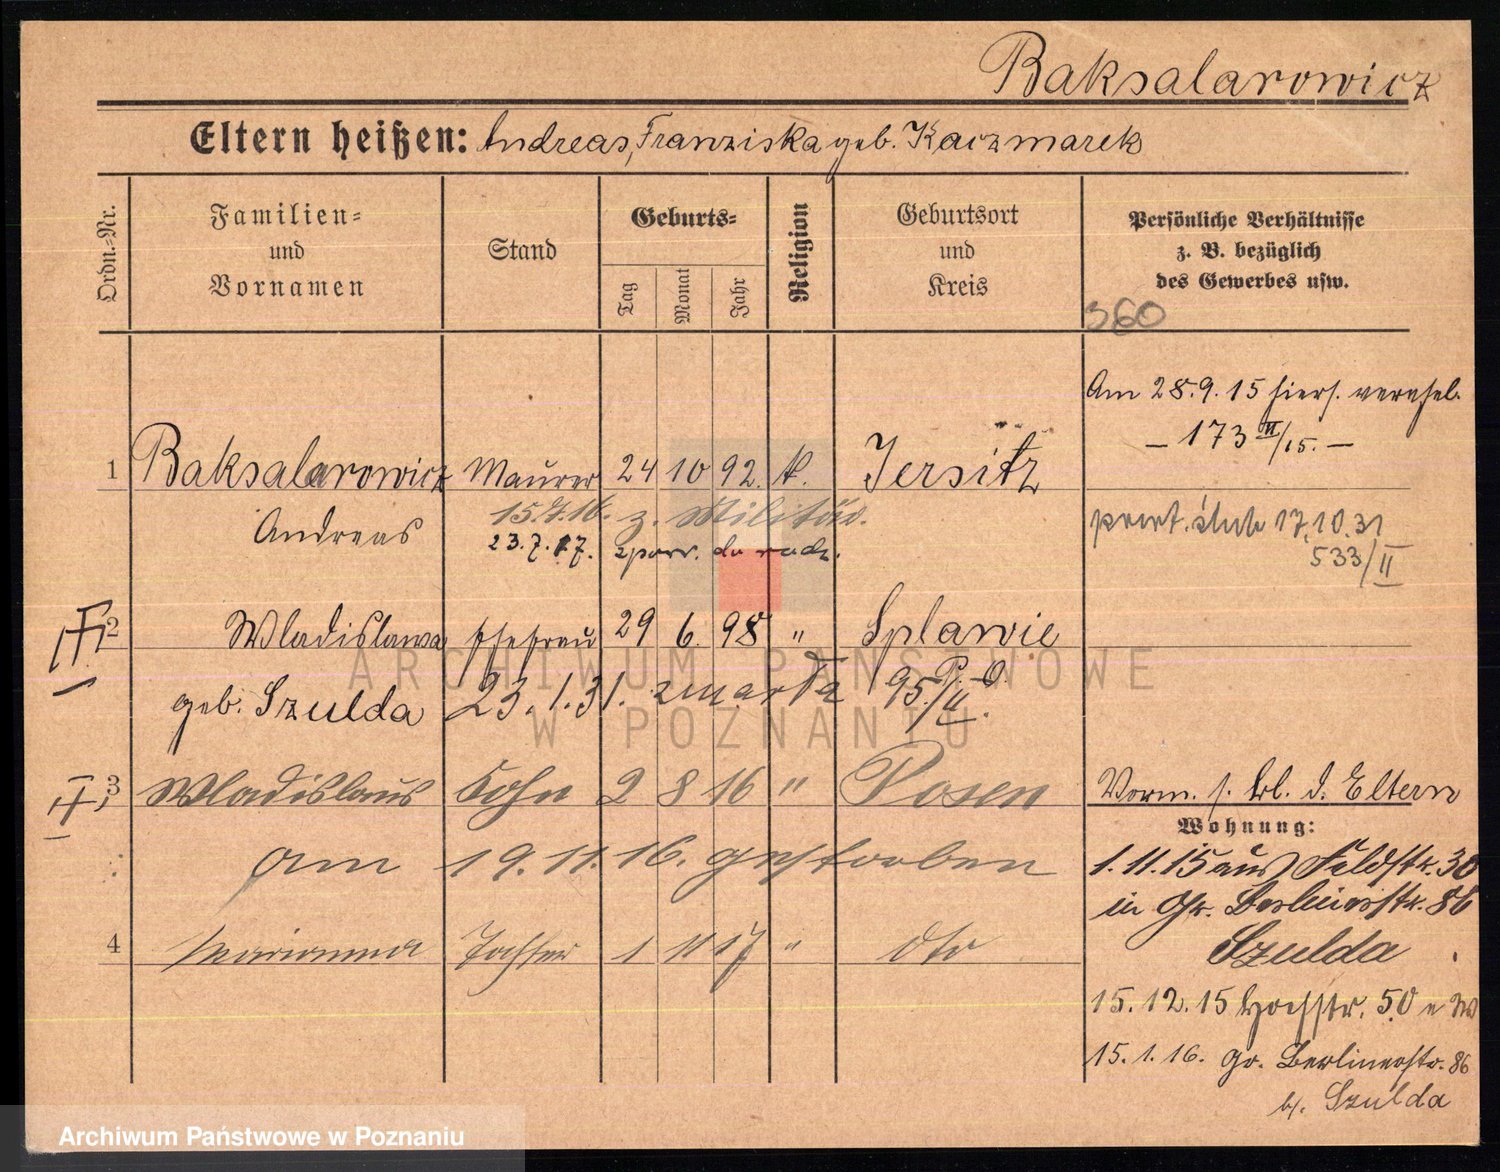 Baksalarowicz
Eltern heißen: Andreas, Franziska geb. Kaczmarek
Ordn.-Nr.
Familien- und Vornamen
Stand
Geburts-
Tag
Monat
Jahr
Religion
Geburtsort und Kreis
Persönliche Verhältnisse
z. B. bezüglich
des Gewerbes usw.
360
Am 28.9.15 hiers. verehel.
– 173 II/15. –
1 Baksalarowicz Maurer 24 10 92. k. Jersitz
Andreas 15.7.16. z. Militär.
23.7.17. do
17.10.31
533/II
2 Wladislawa Ehefrau 29 6. 98 " Splawie
P. O.
geb. Szulda 23.1.31. zmarła 95/II.
3 Wladislaus Sohn 2 8 16 " Posen
Vorm. s. Bl. d. Eltern
am 19.11.16. gestorben
Wohnung:
1.11.15 aus Feldstr. 30
in Gr. Berlinerstr. 86
Szulda
4 Marianna Tochter 1 11 17 " dto
15.12.15 Hochstr. 50
15.1.16. Gr. Berlinerstr. 86
b/. Szulda
ARCHIWUM PAŃSTWOWE
W POZNANIU
Archiwum Państwowe w Poznaniu